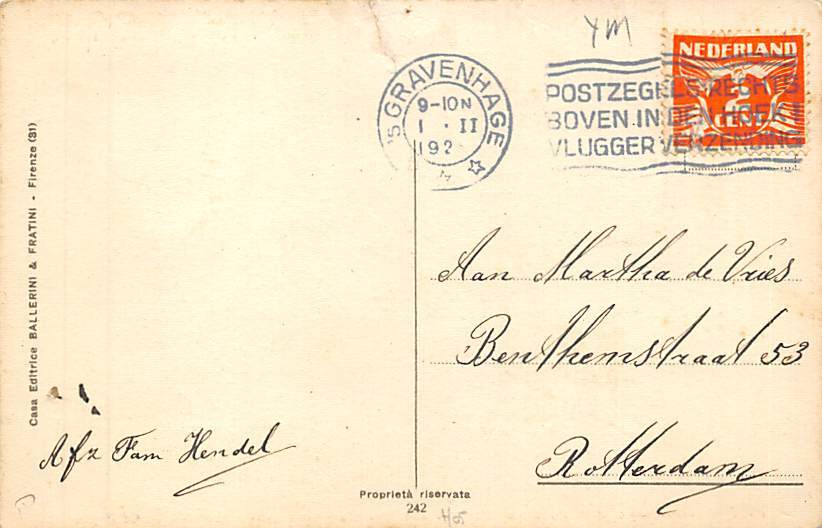 YM
NEDERLAND
2
CENT
'S GRAVENHAGE
9-10N
1 · II
192
POSTZEGELS RECHTS
BOVEN IN DEN HOEK!!
VLUGGER VERZENDING
Casa Editrice BALLERINI & FRATINI - Firenze (81)
Aan Martha de Vries
Benthemstraat 53
Rotterdam
Afz Fam Hendel
Proprietà riservata
242